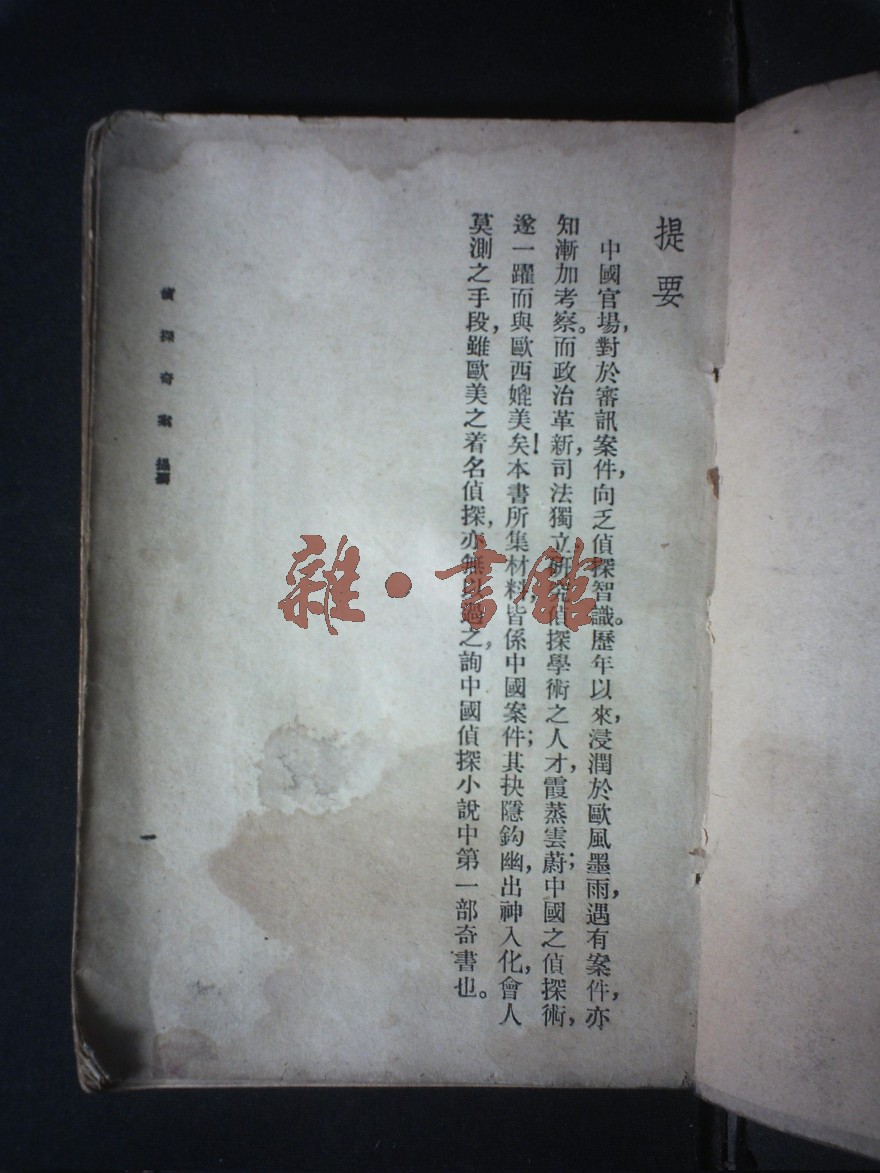 提要
中國官場，對於審訊案件，向乏偵探智識。歷年以來，浸潤於歐風墨雨，遇有案件，亦
知漸加考察。而政治革新，司法獨立，研究偵探學術之人才，霞蒸雲蔚；中國之偵探術，
遂一躍而與歐西媲美矣！本書所集材料，皆係中國案件；其抉隱鈎幽，出神入化，會人
莫測之手段，雖歐美之着名偵探，亦無以過之，詢中國偵探小說中第一部奇書也。
偵探奇案 提要
一
雜·書館